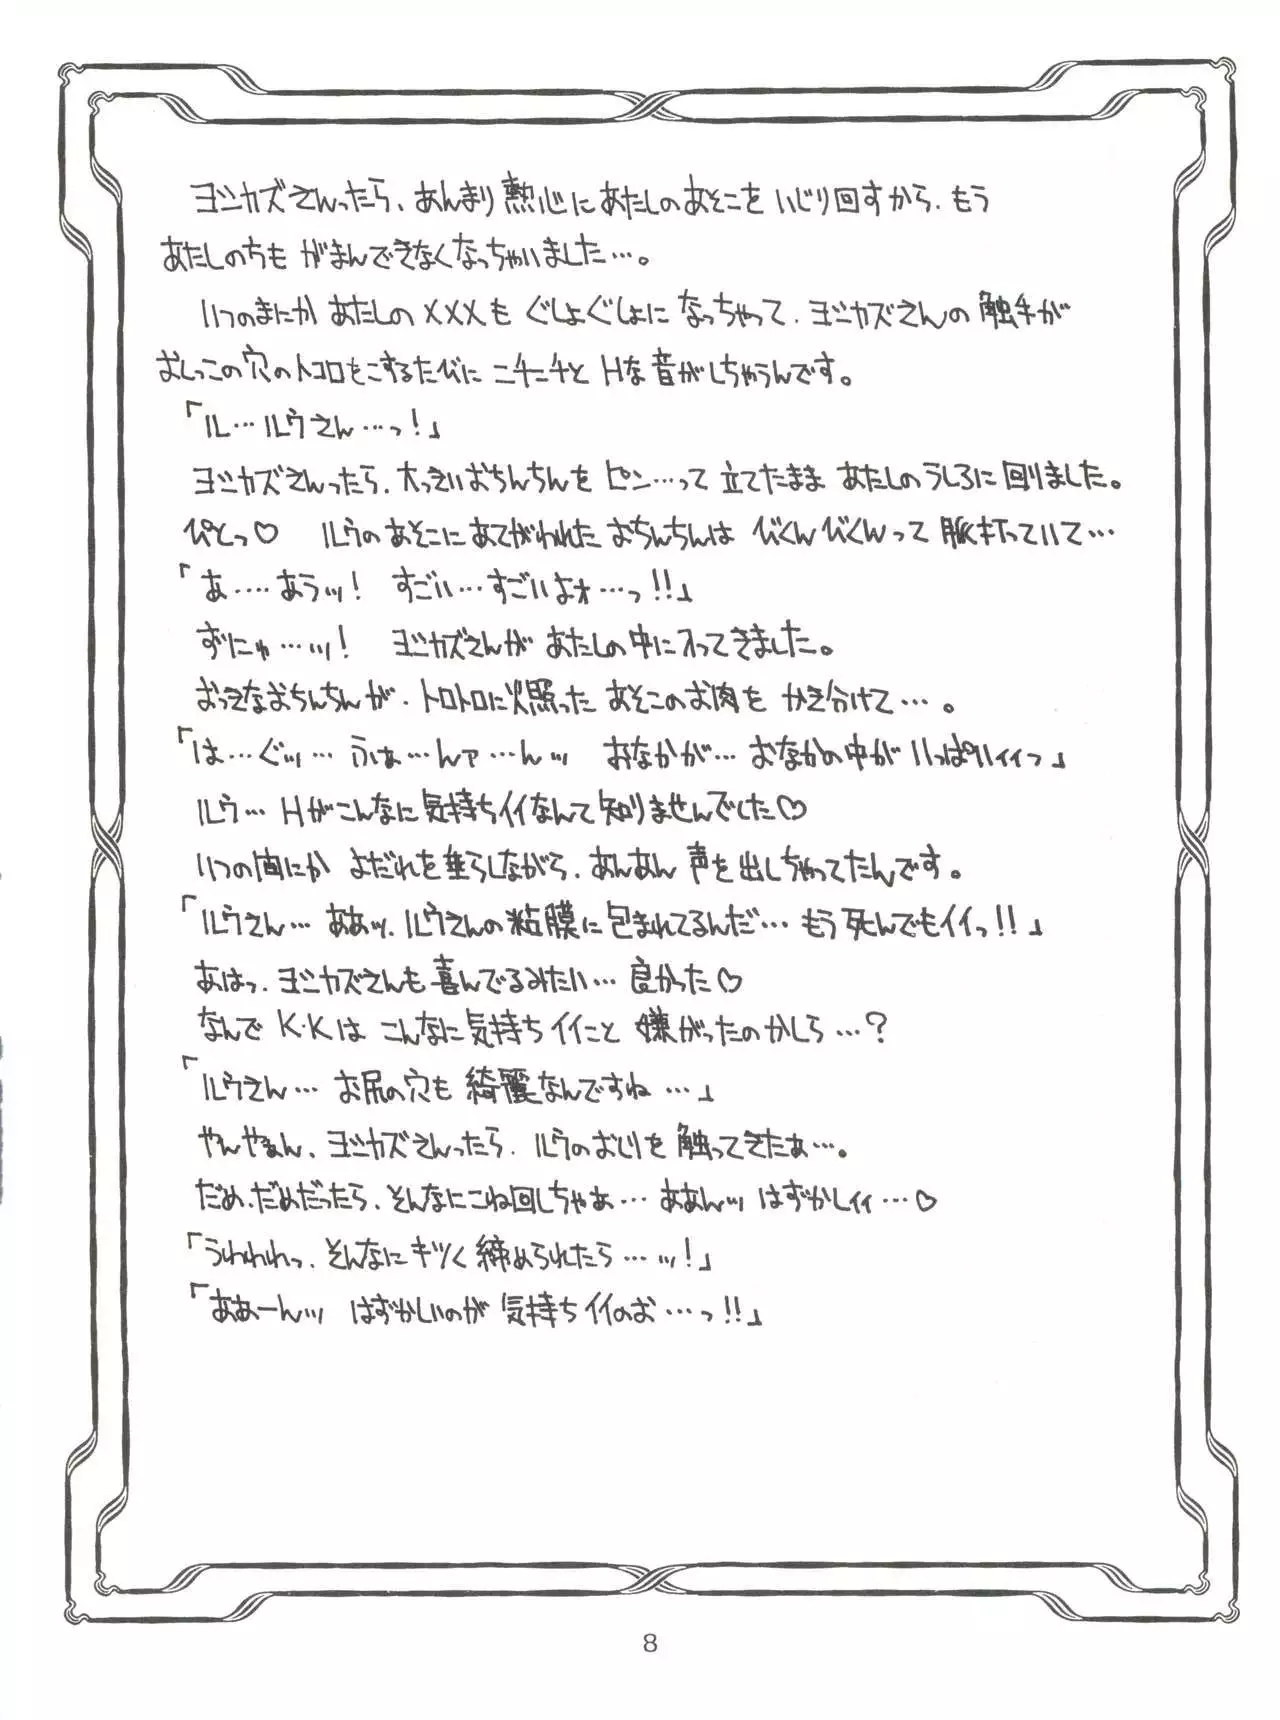 ヨシカズさんったら、あんまり熱心にあたしのあそこをいじり回すから、もう
あたしのちも がまんできなくなっちゃいました…。
いつのまにか あたしの×××も ぐしょぐしょになっちゃって、ヨシカズさんの触手が
おしっこの穴のトコロをこするたびに ニチニチと Hな音がしちゃうんです。
「ル…ルウさん…っ!」
ヨシカズさんったら、大っきいおちんちんを ピン…って立てたまま あたしのうしろに回りました。
ぴとっ♡ ルウのあそこにあてがわれた おちんちんは びくんびくんって 脈打っていて…
「あ……あうッ! すごい…すごいよォ…っ!!」
ずにゅ…ッ! ヨシカズさんが あたしの中に入ってきました。
おっきなおちんちんが、トロトロに火照った あそこのお肉を かき分けて…。
「は…ぐッ… ふぁ…んァ…んッ おなかが… おなかの中が いっぱいィィっ」
ルウ… Hがこんなに気持ちイイなんて知りませんでした♡
いつの間にか よだれを垂らしながら、あんあん 声を出しちゃってたんです。
「ルウさん… ああッ、ルウさんの粘膜に包まれてるんだ… もう死んでもイイっ!!」
あはっ、ヨシカズさんも喜んでるみたい… 良かった♡
なんで K・Kは こんなに気持ちイイこと 嫌がったのかしら…?
「ルウさん… お尻の穴も 綺麗なんですね…」
やんやぁん、ヨシカズさんったら、ルウのおしりを触ってきたぁ…。
だめ、だめだったら、そんなにこね回しちゃぁ… ああんッ はずかしィィ…♡
「うわわわっ、そんなにキツく締められたら…ッ!」
「ああーんッ はずかしいのが 気持ちイイのお…っ!!」
8